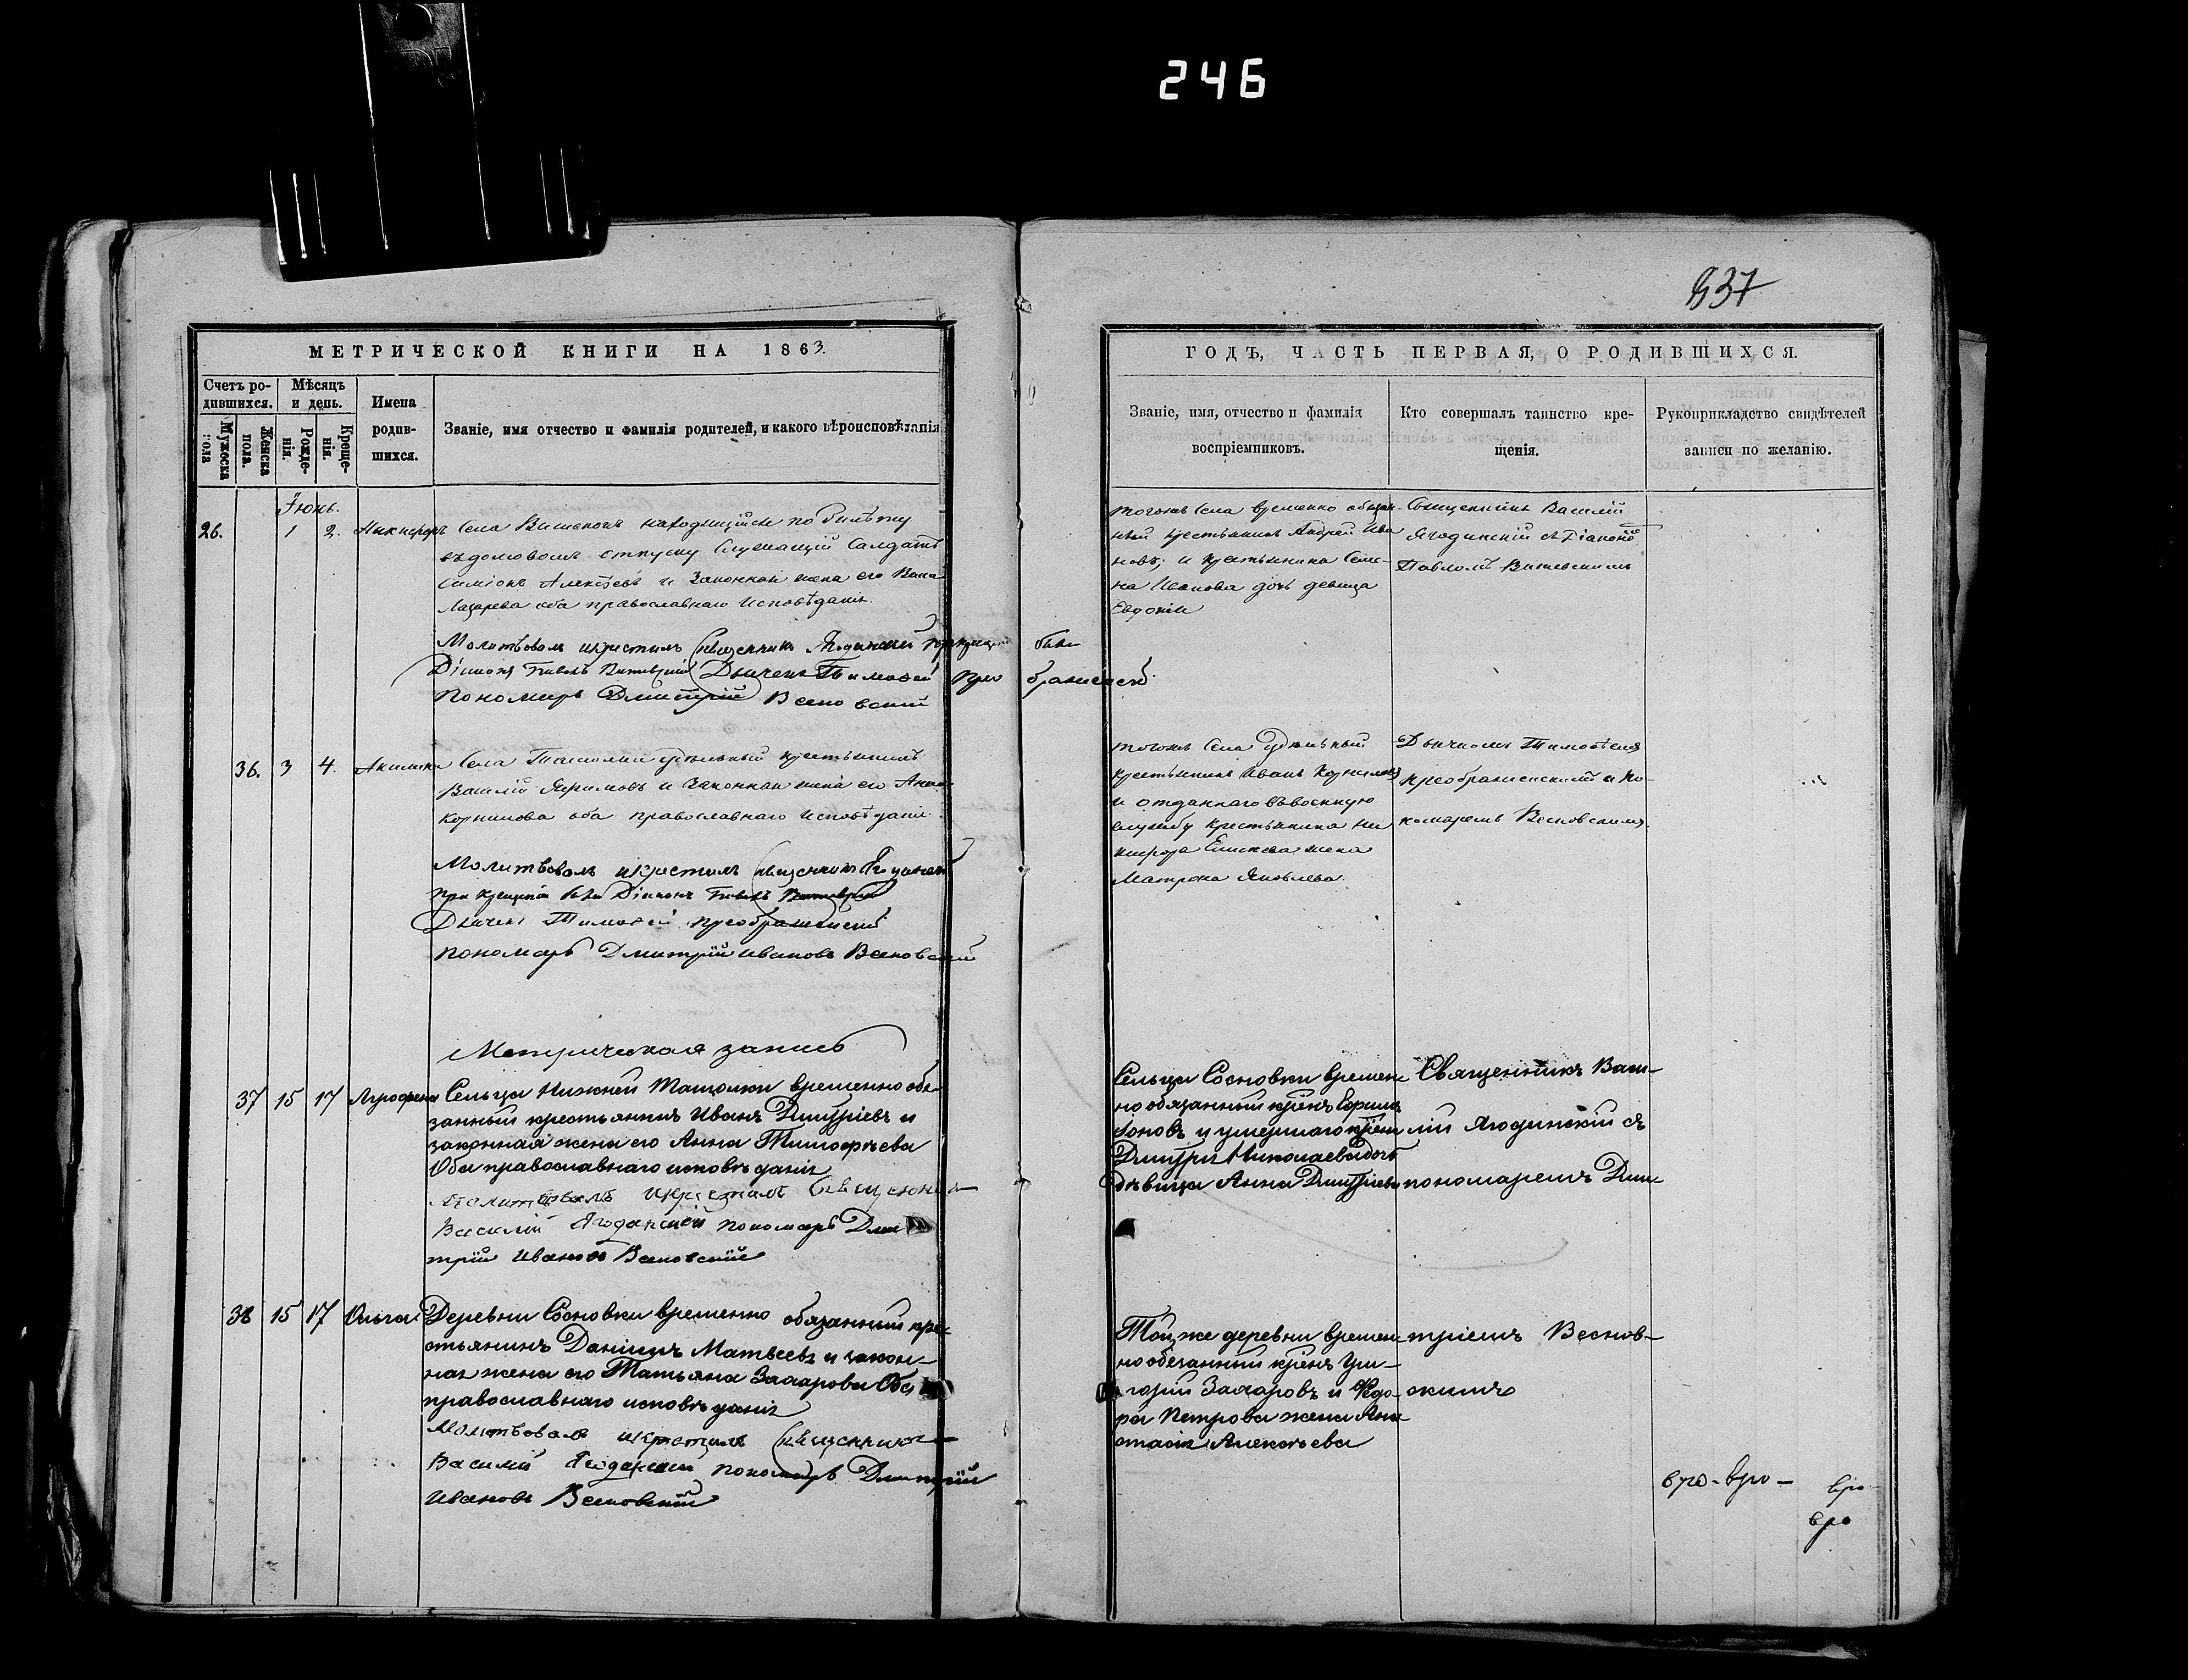 246
837
МЕТРИЧЕСКОЙ КНИГИ НА 1863.
ГОДЪ, ЧАСТЬ ПЕРВАЯ, О РОДИВШИХСЯ.
Счетъ ро-
дившихся.
Мужеска
пола
Женска
пола.
Мѣсяцъ
и день.
Рожде-
нія.
Креще-
нія.
Имена
родив-
шихся.
Званіе, имя отчество и фамилія родителей, и какого вѣроисповѣданія
Званіе, имя, отчество и фамилія
воспріемниковъ.
Кто совершалъ таинство кре-
щенія.
Рукоприкладство свидѣтелей
записи по желанію.
Іюнь.
26. 1 2. Никифоръ
Села Вишенокъ находящійся по билѣту
въ домовомъ отпуску служащій Салдатъ
Симіонъ Алексѣевъ и Законная жена его
Лазарева оба православнаго исповѣданія.
Молитвовалъ и крестилъ Священникъ Ягодинскій при крещеніи были
Діаконъ Павелъ Дьячекъ Тимофей Преображенской
Пономарь Дмитрій Весновскій
тогожъ Села временно обязан-
ный крестьянинъ Андрей Ива
новъ; и крестьянина Семе-
на Иванова дочь девица
Евдокія
Священникъ Василій
Ягодинскій съ Діаконо
Павломъ
36. 3 4. Акилина
Села удѣльный крестьянинъ
Василій Яфимовъ и Законная жена его Анна
Корнилова оба православнаго исповѣданія.
Молитвовалъ и крестилъ Священникъ Ягодинскій
при крещеніи были Діаконъ Павелъ
Дьячекъ Тимофей Преображенскій
пономарь Дмитрій Ивановъ Весновскій
тогожъ Села удѣльный
крестьянинъ Иванъ Корниловъ
и отданнаго въ военную
службу крестьянина Ни
кифора жена
Матрона Яковлева.
Дьячкомъ Тимофѣемъ
Преображенскимъ и по-
номаремъ Весновскимъ.
Метрическая запись
37 15 17 Агрофена
Сельца Нижней Ташолки временно обя-
занный крестьянинъ Иванъ Дмитріевъ и
законная жена его Анна Тимофѣева
Оба православнаго исповѣданія
Молитвовалъ и крестилъ Священникъ
Василій Ягодинскій пономарь Дми
трій Ивановъ Весновскій
Сельца Сосновки времен-
но обязанный крѣнъ
и умершаго крѣна
Дмитрія Николаева дочь
дѣвица Анна Дмитріева
Священникъ Васи-
лій Ягодинскій съ
пономаремъ Дми-
38 15 17 Ольга
Деревни Сосновки временно обязанный кре-
стьянинъ Даніилъ Матвеевъ и закон-
ная жена его Татьяна Захарова Оба
православнаго исповѣданія
Молитвовалъ и крестилъ Священникъ
Василій Ягодинскій пономарь Дмитрій
Ивановъ Весновскій
Той же деревни времен-
но обезанный крѣнъ Гри-
горій Захаровъ и Федо-
ра Петрова жена Ана
стасія Алексѣева
тріемъ Веснов-
скимъ